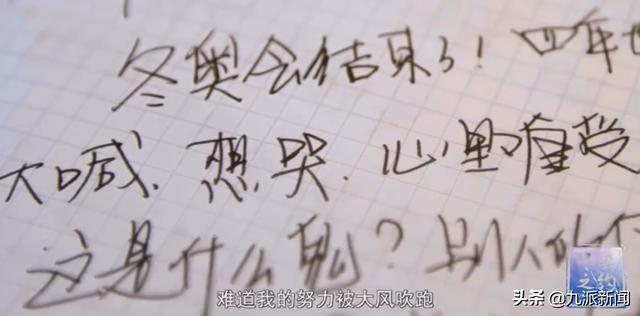 冬奥会结束了！四年
大喊、想哭、心里难受
这是什么鬼？别人的
难道我的努力被大风吹跑
之约
头条 @九派新闻